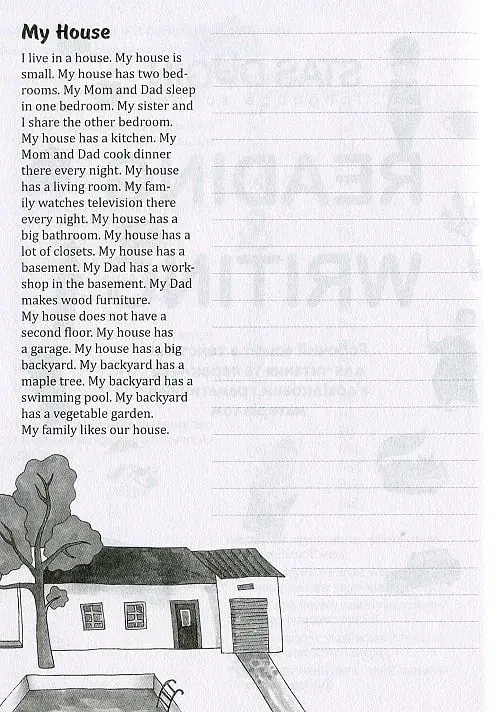 My House
I live in a house. My house is
small. My house has two bed-
rooms. My Mom and Dad sleep
in one bedroom. My sister and
I share the other bedroom.
My house has a kitchen. My
Mom and Dad cook dinner
there every night. My house
has a living room. My fam-
ily watches television there
every night. My house has a
big bathroom. My house has a
lot of closets. My house has a
basement. My Dad has a work-
shop in the basement. My Dad
makes wood furniture.
My house does not have a
second floor. My house has
a garage. My house has a big
backyard. My backyard has a
maple tree. My backyard has a
swimming pool. My backyard
has a vegetable garden.
My family likes our house.